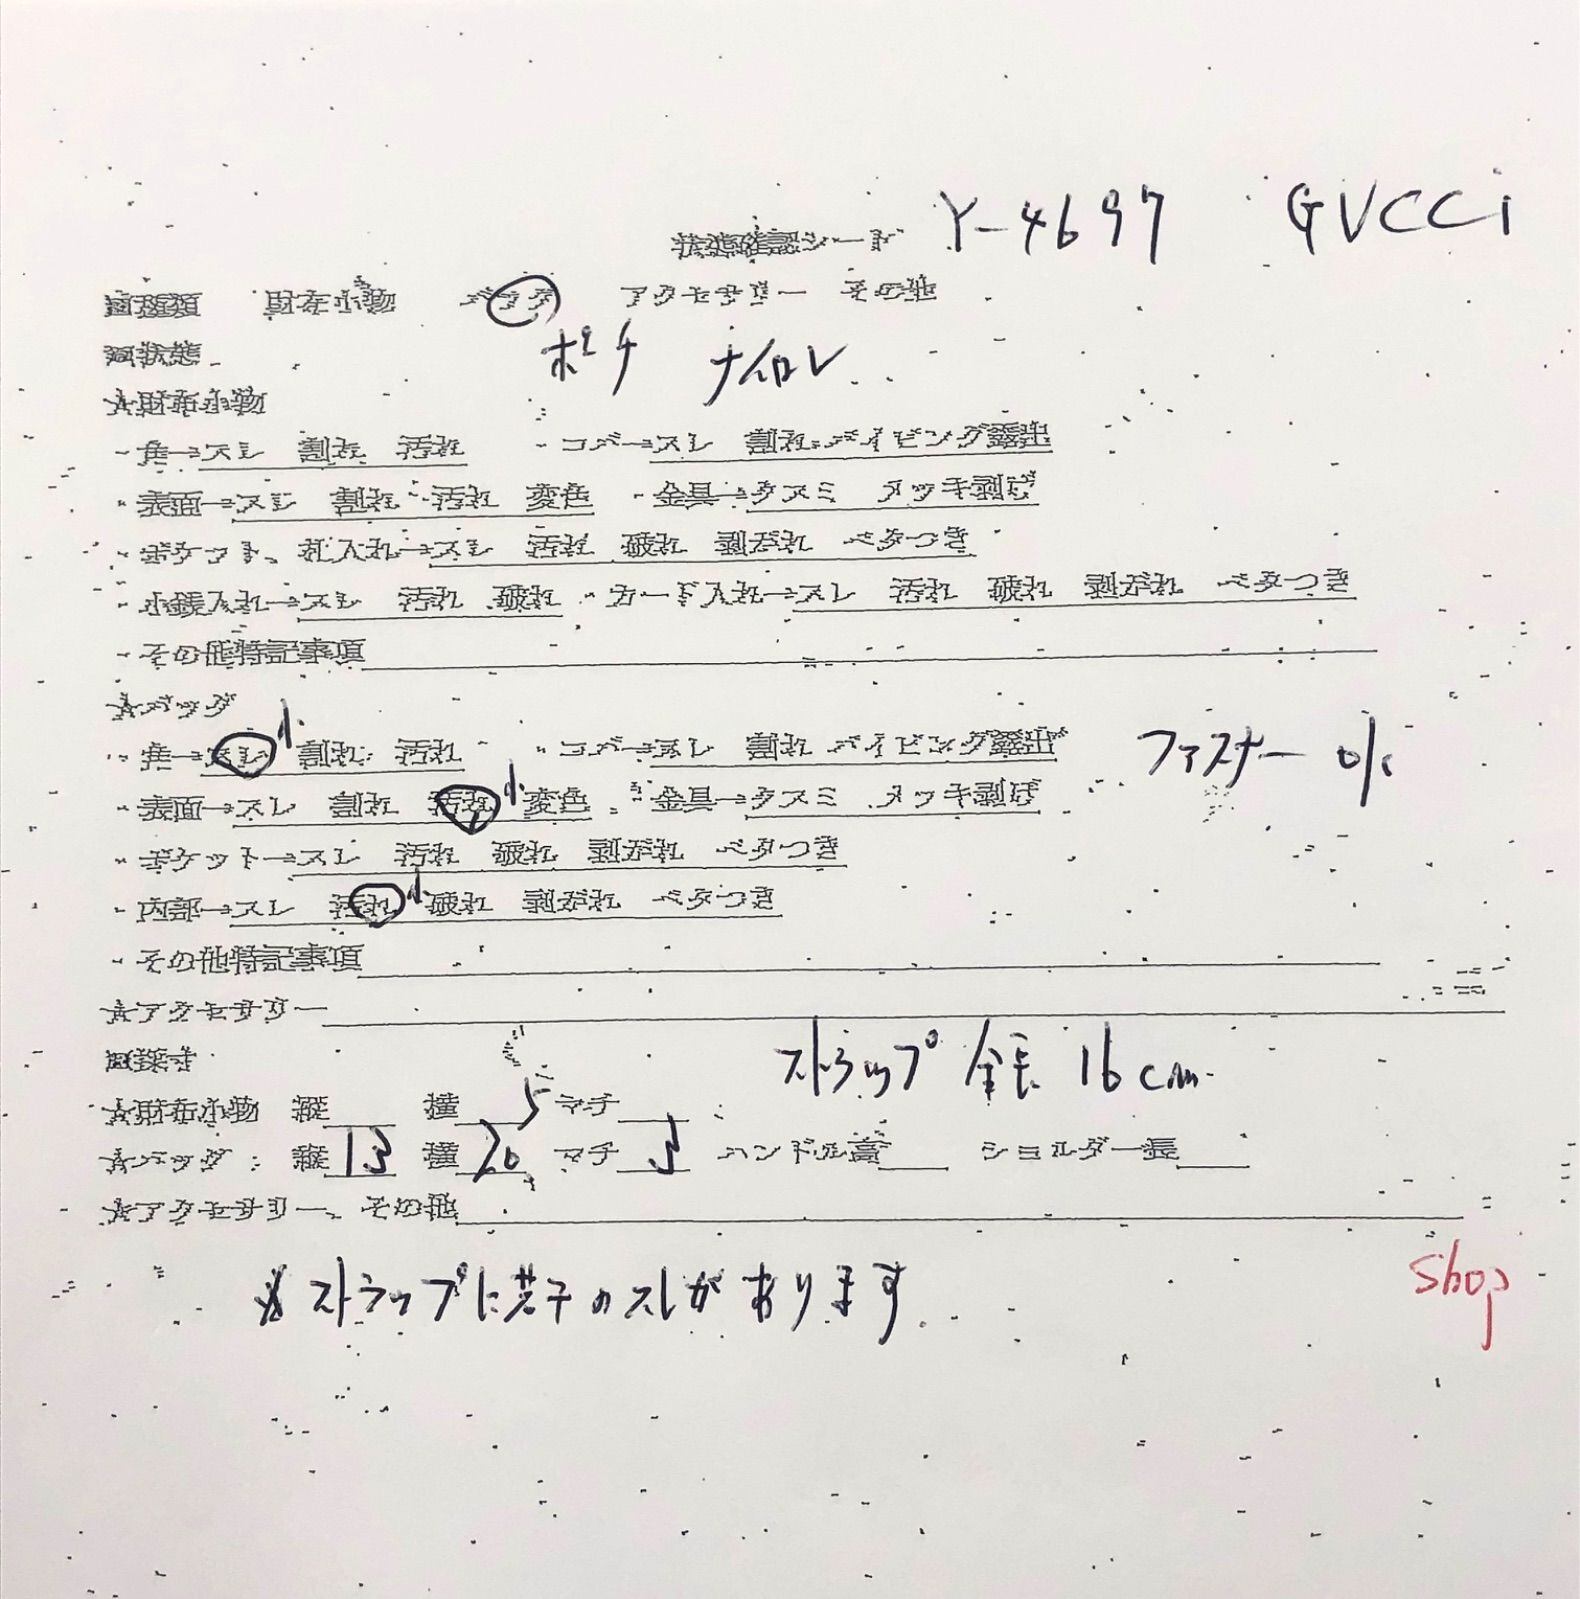 状態確認シート Y-4697 GUCCi
回種類 財布小物 バッグ アクセサリー その他
回状態 ポーチ ナイロン
☆財布小物
・角→スレ 割れ 汚れ ・コバ→スレ 割れ パイピング露出
・表面→スレ 割れ 汚れ 変色 ・金具→クスミ メッキ剥げ
・ポケット、札入れ→スレ 汚れ 破れ 剥がれ ベタつき
・小銭入れ→スレ 汚れ 破れ ・カード入れ→スレ 汚れ 破れ 剥がれ ベタつき
・その他特記事項
☆バッグ
・角→スレ小 割れ 汚れ ・コバ→スレ 割れ パイピング露出 ファスナー o/c
・表面→スレ 割れ 汚れ小 変色 ・金具→クスミ メッキ剥げ
・ポケット→スレ 汚れ 破れ 剥がれ ベタつき
・内部→スレ 汚れ小 破れ 剥がれ ベタつき
・その他特記事項
☆アクセサリー
回採寸 ストラップ 全長 16cm
☆財布小物 縦 横 マチ
☆バッグ: 縦 13 横 20.5 マチ 3 ハンドル高 ショルダー長
☆アクセサリー、その他
※ストラップに若干のスレがあります
Shop